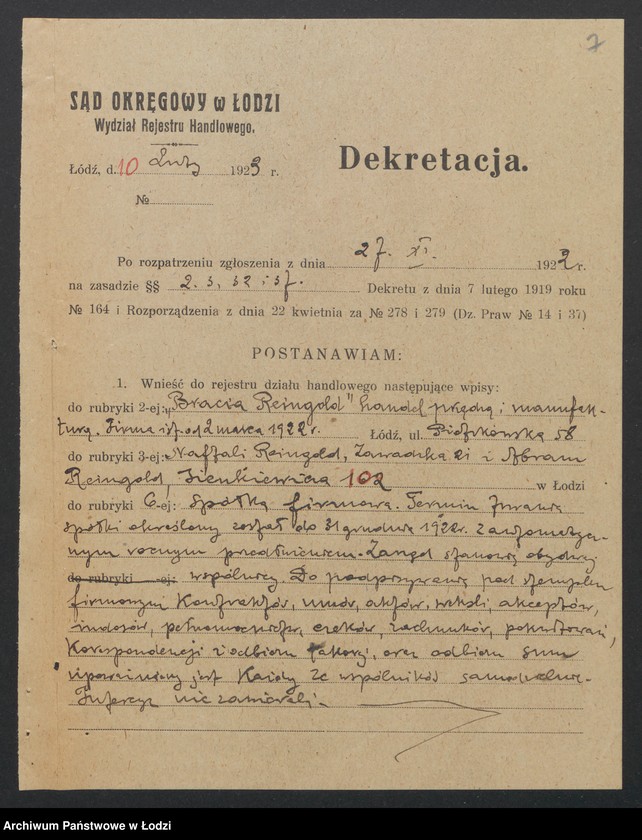 7
SĄD OKRĘGOWY w ŁODZI
Wydział Rejestru Handlowego.
Dekretacja.
Łódź, d. 10 Luty 1923 r.
№
Po rozpatrzeniu zgłoszenia z dnia 27. XI. 1922 r.
na zasadzie §§ 2. 3, 32 i 37. Dekretu z dnia 7 lutego 1919 roku
№ 164 i Rozporządzenia z dnia 22 kwietnia za № 278 i 279 (Dz. Praw № 14 i 37)
POSTANAWIAM:
1. Wnieść do rejestru działu handlowego następujące wpisy:
do rubryki 2-ej: „Bracia Reingold" handel przędzą i manufak-
turą. Firma istn. od 2 marca 1922 r. Łódź, ul. Piotrkowska 58
do rubryki 3-ej: Naftali Reingold, Zawadzka 21 i Abram
Reingold, Sienkiewicza 102 w Łodzi
do rubryki 6-ej: Spółka firmowa. Termin trwania
spółki określony został do 31 grudnia 1922 r. z automatycz-
nym rocznym przedłużeniem. Zarząd stanowią obydwaj
do rubryki -ej: wspólnicy. Do podpisywania pod stemplem
firmowym kontraktów, umów, aktów, weksli, akceptów,
indosów, pełnomocnictw, czeków, rachunków, pokwitowań,
korespondencji i odbioru takowej, oraz odbioru sum
upoważniony jest każdy ze wspólników samodzielnie.
Intercyz nie zawierali.
Archiwum Państwowe w Łodzi